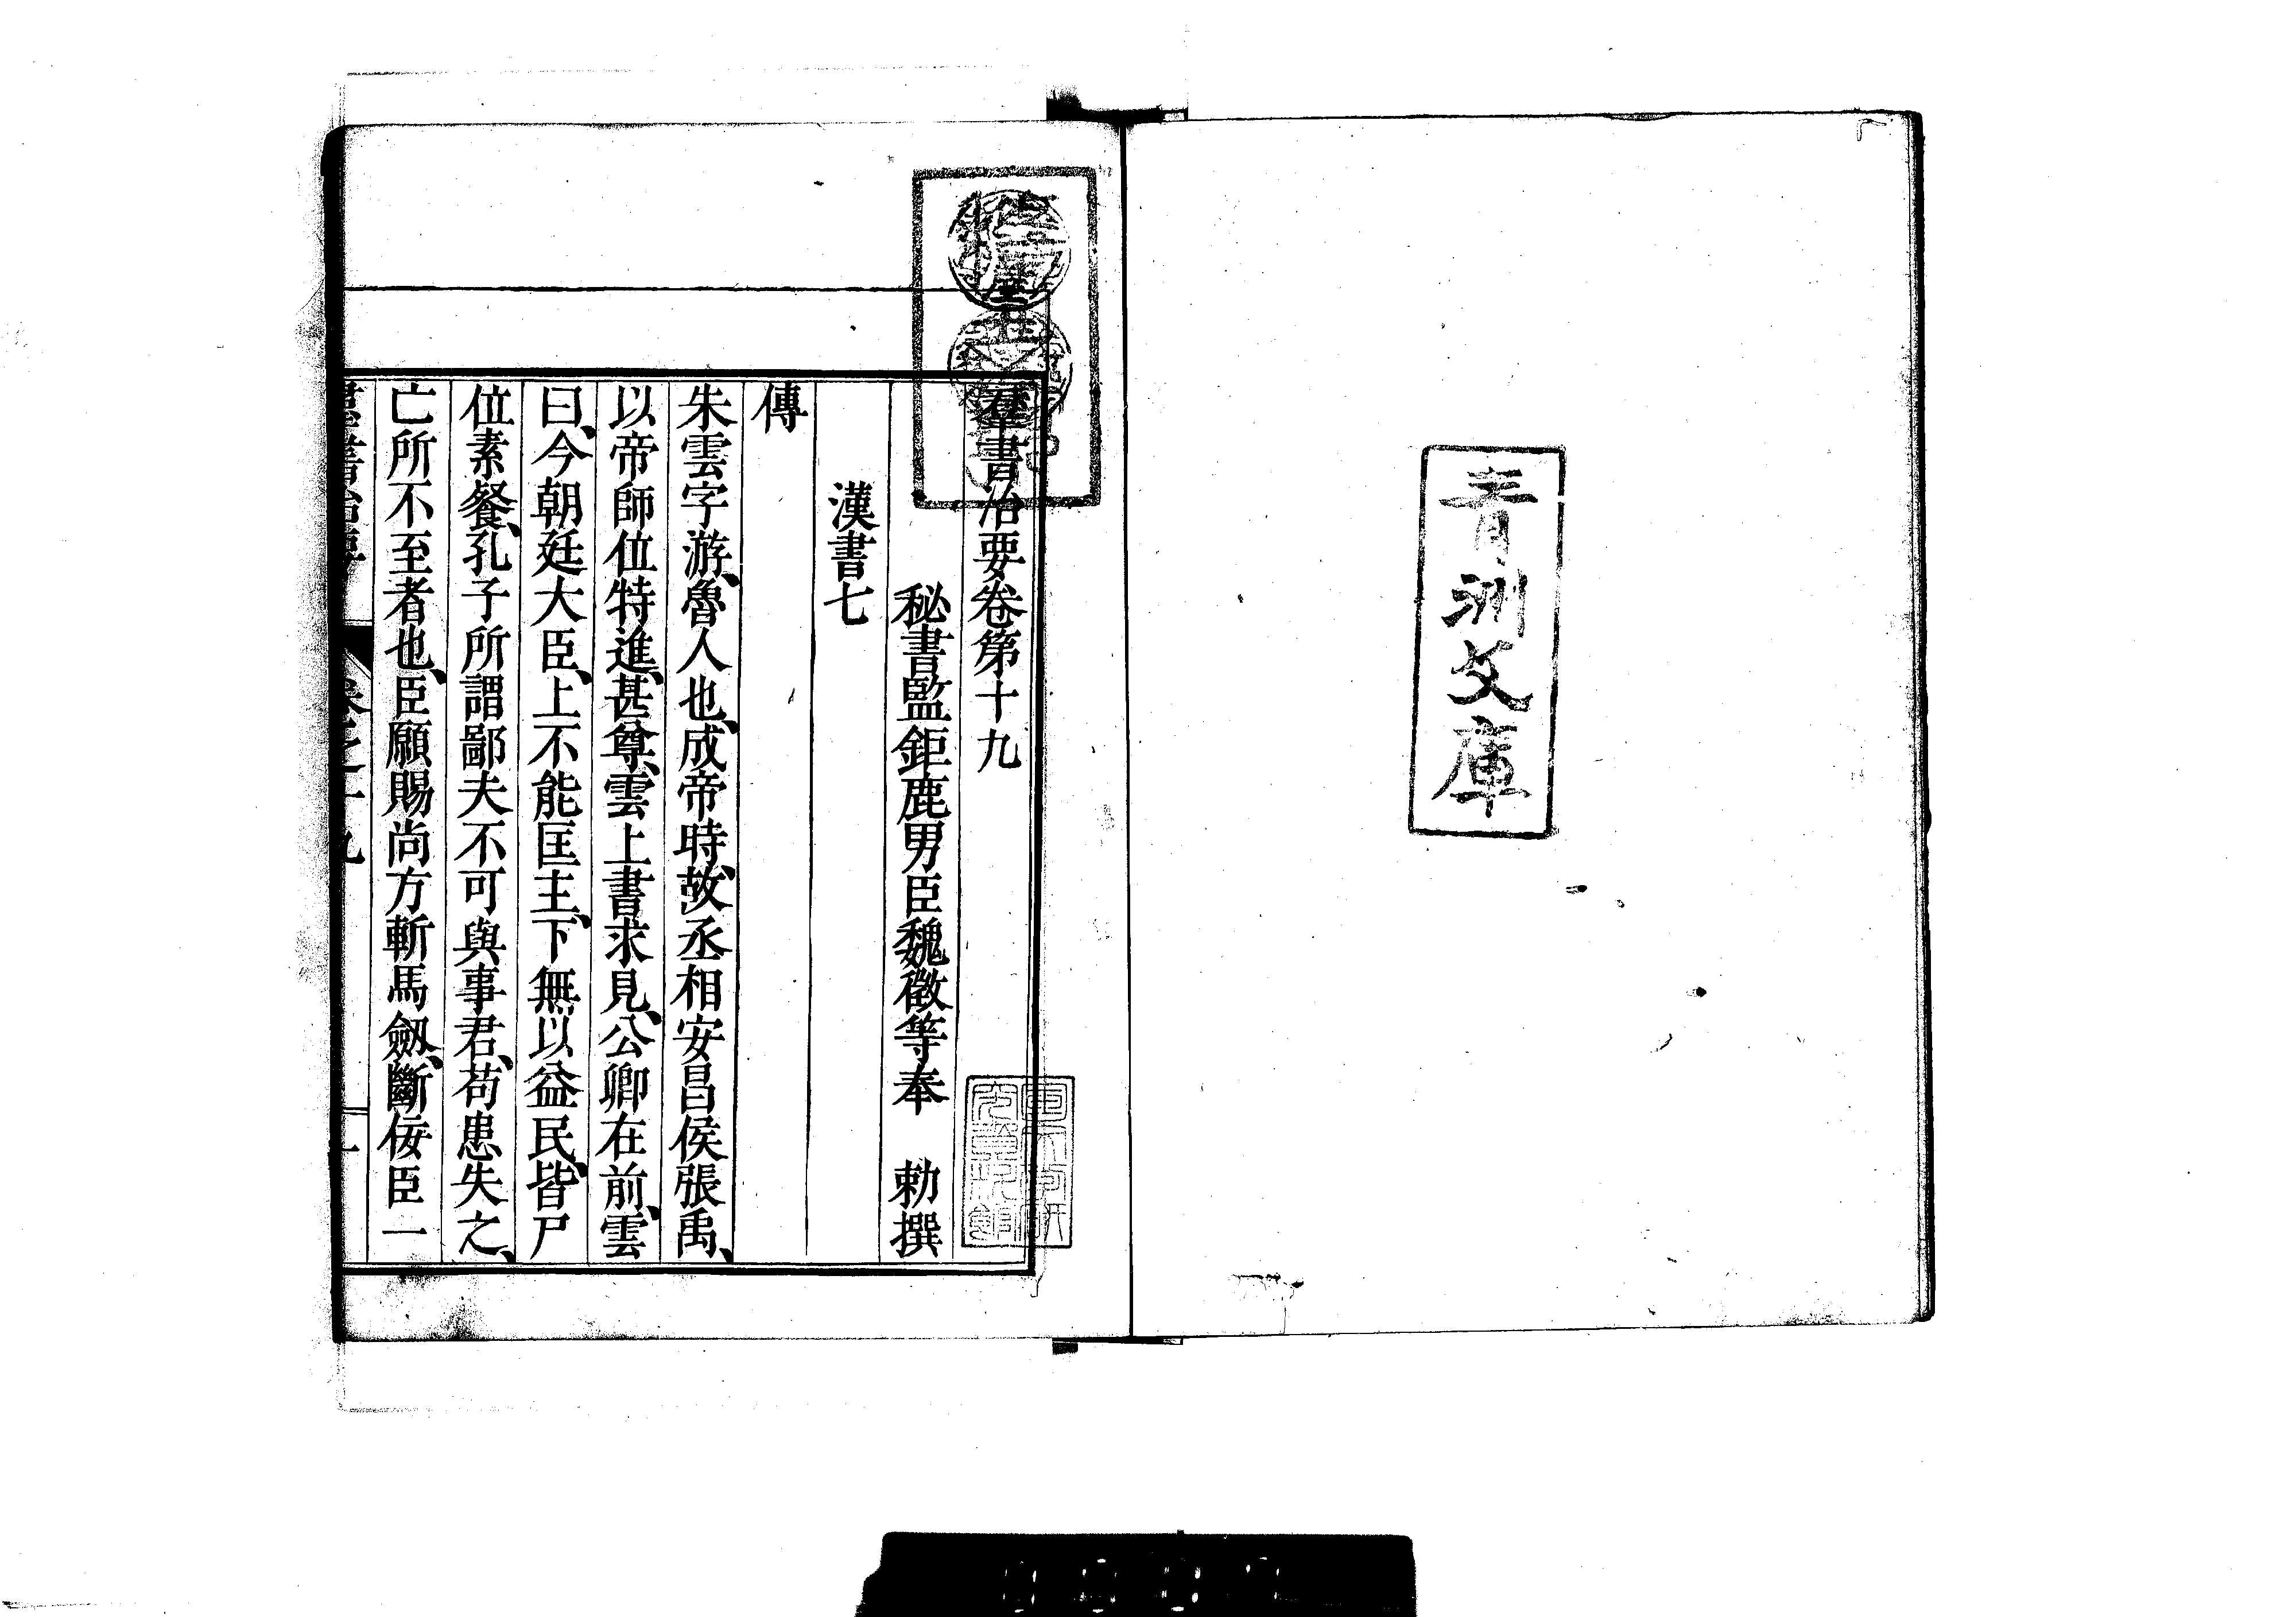 青洲文庫
羣書治要卷第十九
秘書監鉅鹿男臣魏徵等奉　勅撰
漢書七
傳
朱雲字游、魯人也、成帝時、故丞相安昌侯張禹、
以帝師位特進、甚尊、雲上書求見、公卿在前、雲
曰、今朝廷大臣、上不能匡主、下無以益民、皆尸
位素餐、孔子所謂鄙夫不可與事君、苟患失之、
亡所不至者也、臣願賜尚方斬馬劔、斷佞臣一